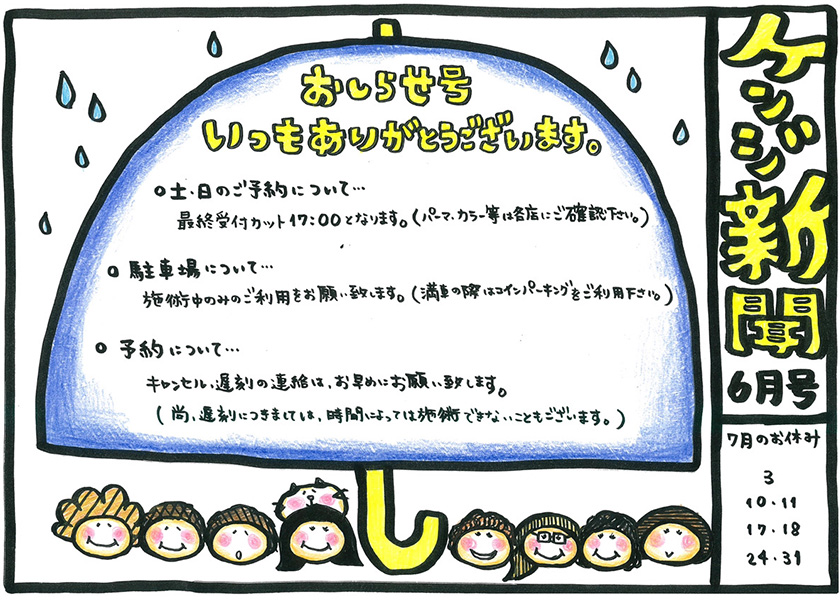 ケンジ新聞
6月号
おしらせ号
いつもありがとうございます。
○土・日のご予約について…
最終受付カット17:00となります。(パーマ、カラー等は各店にご確認下さい。)
○駐車場について…
施術中のみのご利用をお願い致します。(満車の際はコインパーキングをご利用下さい。)
○予約について…
キャンセル、遅刻の連絡は、お早めにお願い致します。
(尚、遅刻につきましては、時間によっては施術できないこともございます。)
7月のお休み
3
10・11
17・18
24・31